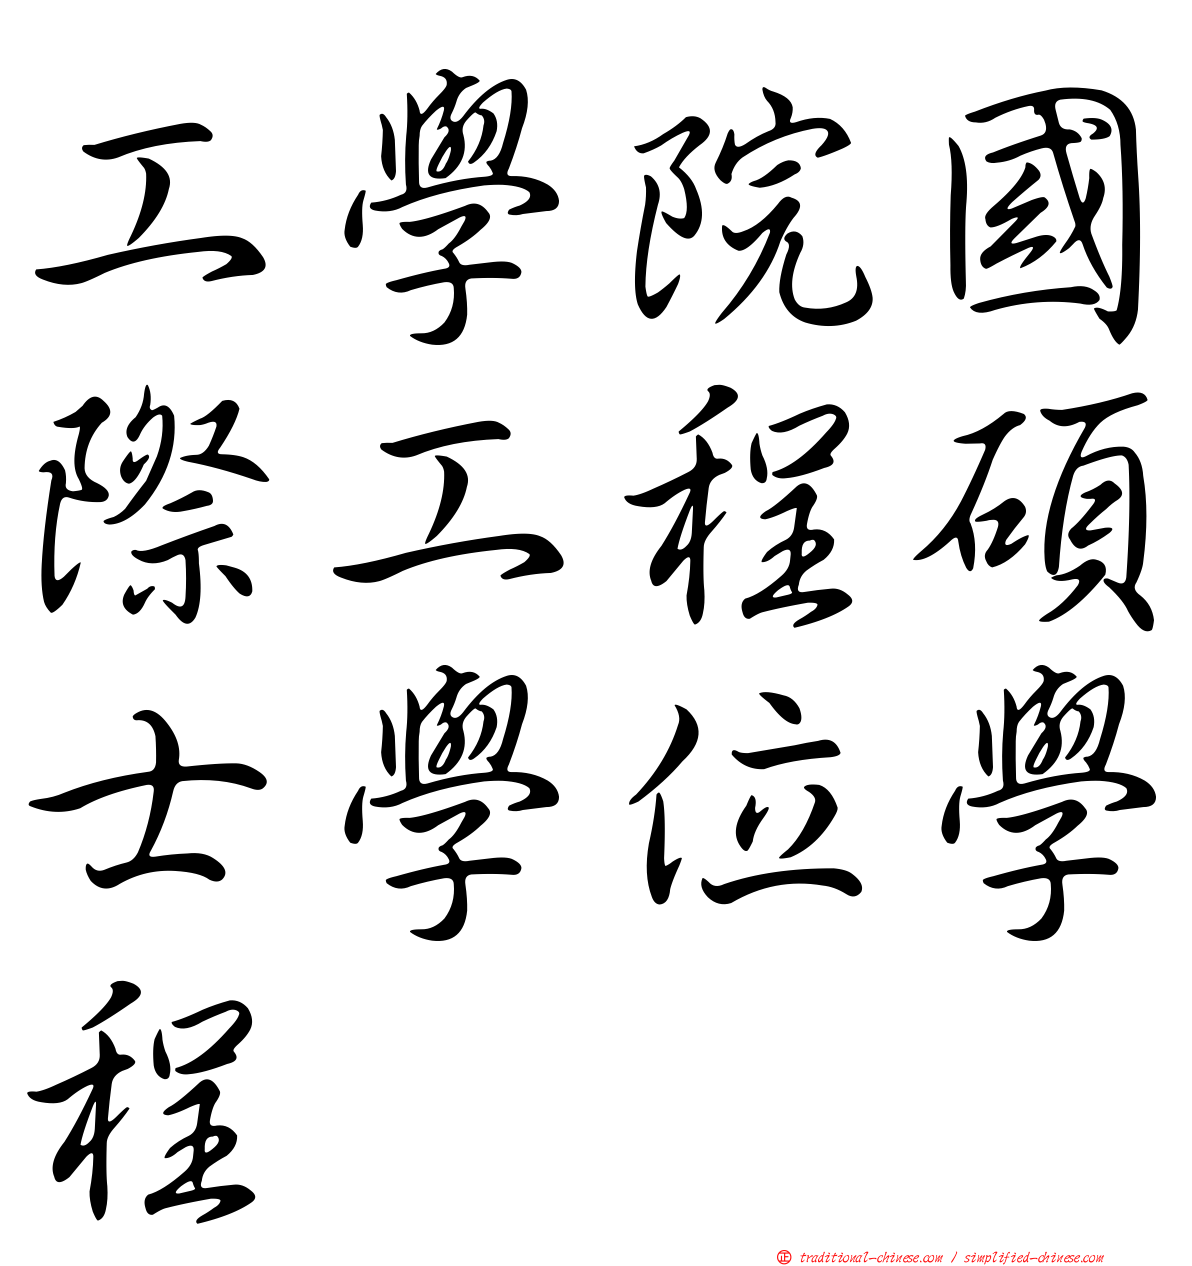 工學院國
際工程碩
士學位學
程
㊣ traditional-chinese.com / simplified-chinese.com